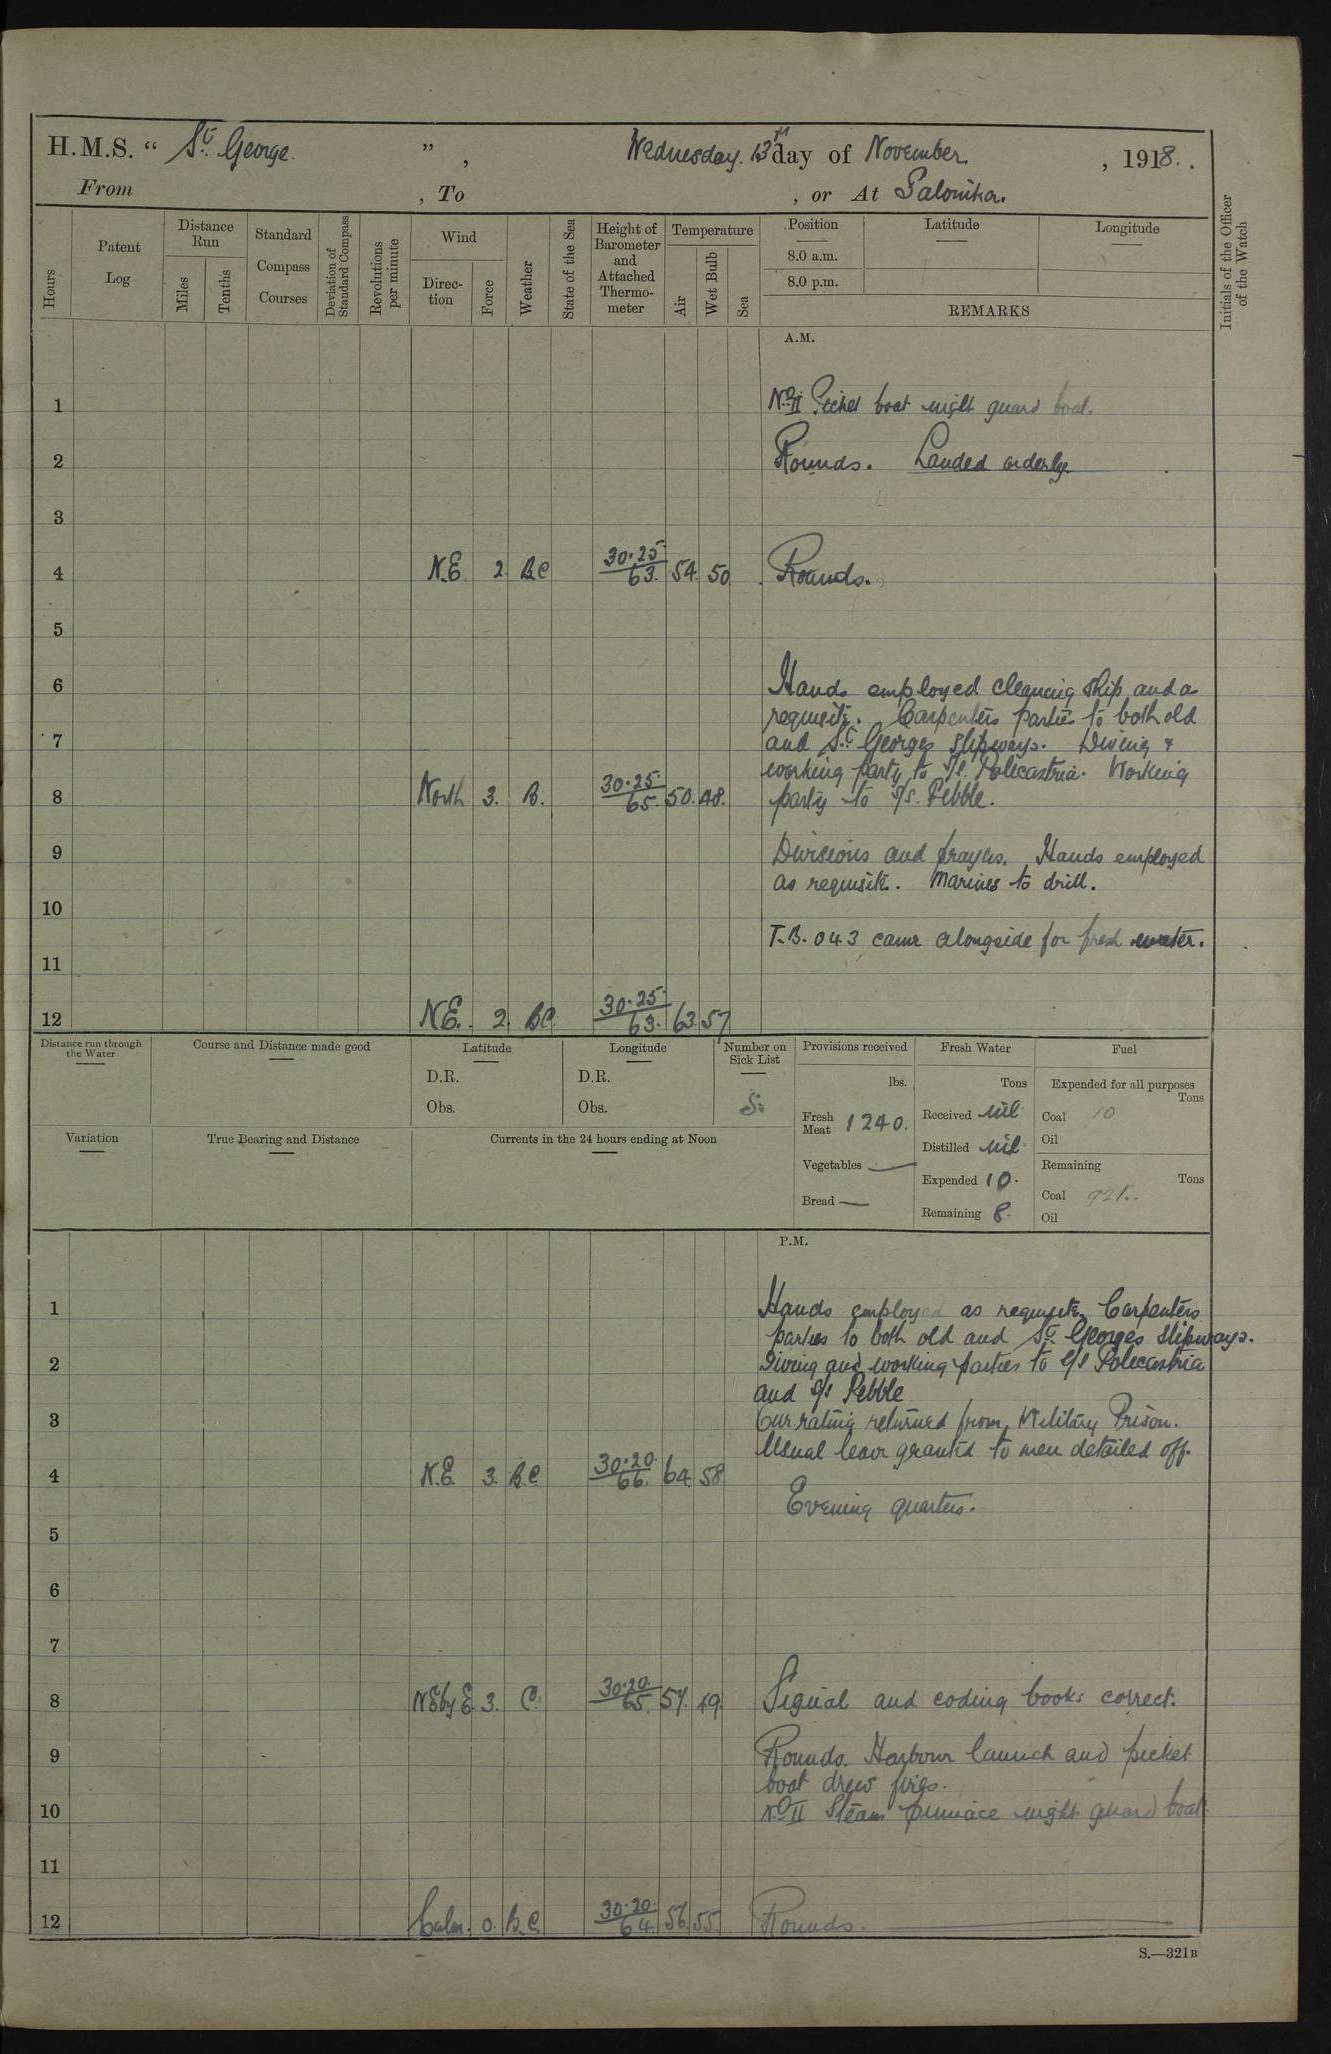 H.M.S. “ St. George ” , Wednesday. 13th day of November , 1918.
From , To , or At Salonika.
Hours
Patent Log
Distance Run
Miles
Tenths
Standard Compass Courses
Deviation of Standard Compass
Revolutions per minute
Wind
Direction
Force
Weather
State of the Sea
Height of Barometer and Attached Thermometer
Temperature
Air
Wet Bulb
Sea
Position
8.0 a.m.
8.0 p.m.
Latitude
Longitude
REMARKS
Initials of the Officer of the Watch
A.M.
1 No. II Picket boat night guard boat.
2 Rounds. Landed orderly.
3
4 N.E. 2. B.C 30.25 63. 54. 50 Rounds.
5
6 Hands employed cleaning ship and as
requisite. Carpenters parties to both old
7 and St. Georges slipways. Diving &
working party to S/S. Policastria. Working
8 North 3. B. 30.25 65. 50. 48. party to S/S. Pebble.
9 Divisions and prayers. Hands employed
as requisite. Marines to drill.
10
T.B. 043 came alongside for fresh water.
11
12 N.E. 2. B.C. 30.25 63. 63 57
Distance run through the Water
Course and Distance made good
Latitude
D.R.
Obs.
Longitude
D.R.
Obs.
Number on Sick List
Provisions received
lbs.
Fresh Meat 1240.
Vegetables —
Bread —
Fresh Water
Tons
Received nil
Distilled nil
Expended 10.
Remaining 8.
Fuel
Expended for all purposes
Tons
Coal 10
Oil
Remaining
Tons
Coal
Oil
Variation
True Bearing and Distance
Currents in the 24 hours ending at Noon
P.M.
1 Hands employed as requisite. Carpenters
parties to both old and St. Georges slipways.
2 Diving and working parties to S/S Policastria
and S/S Pebble
3 One rating returned from Military Prison.
Usual leave granted to men detailed off.
4 N.E. 3. B.C 30.20. 66. 64. 58
Evening quarters.
5
6
7
8 NEbyE 3. C. 30.20. 65. 57. 49. Signal and coding books correct.
9 Rounds. Harbour launch and picket
boat drew fires.
10 No. II Steam pinnace night guard boat.
11
12 Calm. 0. B.C. 30.20. 64. 56. 55. Rounds.
S.—321B